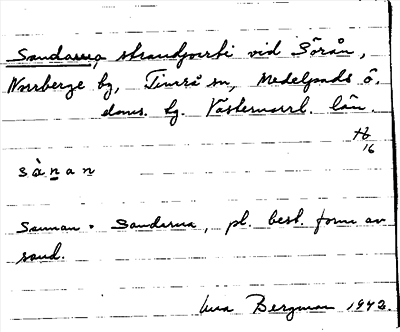 Sandarna strandparti vid Sörån,
Norrberge by, Timrå sn, Medelpads ö.
doms. hg. Västernorrl. län.
16
sànan
Sannan = Sandarna, pl. best. form av
sand.
Bergman 1942.